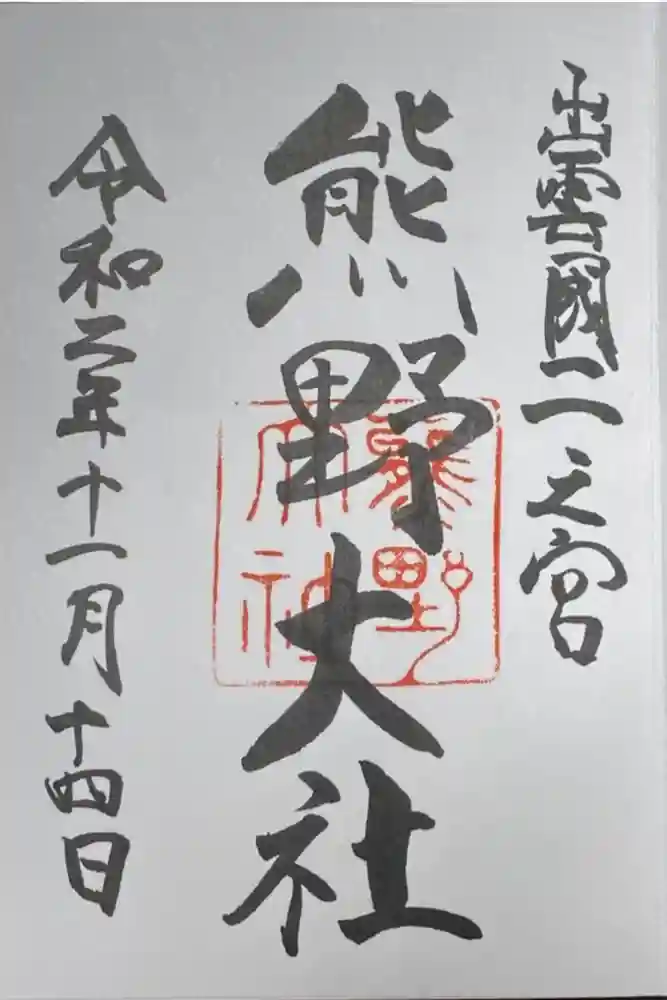 出雲國一之宮
熊野大社
令和二年十一月十四日
熊野
大神